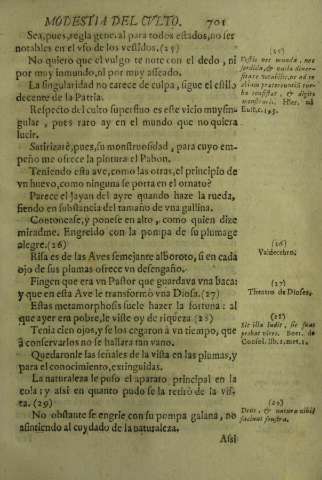 MODESTIA DEL CVLTO. 701
Sea, pues, regla general para todos estados, no ser
notables en el vso de los vestidos. (25)
No quiero que el vulgo te note con el dedo, ni
por muy inmundo, ni por muy asseado.
La singularidad no carece de culpa, sigue el estilo
decente de la Patria.
Respecto del culto superfluo es este vicio muy sin-
gular, pues raro ay en el mundo que no quiera
lucir.
Satirizarè, pues, su monstruosidad, para cuyo em-
peño me ofrece la pintura el Pabon.
Teniendo esta ave, como las otras, el principio de
vn huevo, como ninguna se porta en el ornato?
Parece el Jayan del ayre quando haze la rueda,
siendo en substancia del tamaño de vna gallina.
Contonease, y ponese en alto, como quien dize
miradme. Engreido con la pompa de su plumage
alegre. (26)
Risa es de las Aves semejante alboroto, si en cada
ojo de sus plumas ofrece vn desengaño.
Fingen que era vn Pastor que guardava vna baca:
y que en esta Ave le transformò vna Diosa. (27)
Estas metamorphosis suele hazer la fortuna: al
que ayer era pobre, le viste oy de riqueza (28)
Tenia cien ojos, y se los cegaron à vn tiempo, que
à conservarlos no se hallara tan vano.
Quedaronle las señales de la vista en las plumas, y
para el conocimiento, extinguidas.
La naturaleza le puso el aparato principal en la
cola: y assi en quanto pudo se la retirò de la vis-
ta. (29)
No obstante se engrie con su pompa galana, no
assintiendo al cuydado de la naturaleza.
Assi
(25)
Vestis nec munda, nec
sordida, & nulla diver-
sitate notabilis, ne ad te
obvia prætereuntiũ tur-
ba consistat, & digito
monstreris. Hier. ad
(26)
Valdecebro.
(27)
Theatro de Dioses.
(28)
Boet. de
Consol. lib. 2. met. 1.
(29)
Deus, & natura nihil
faciunt frustra.